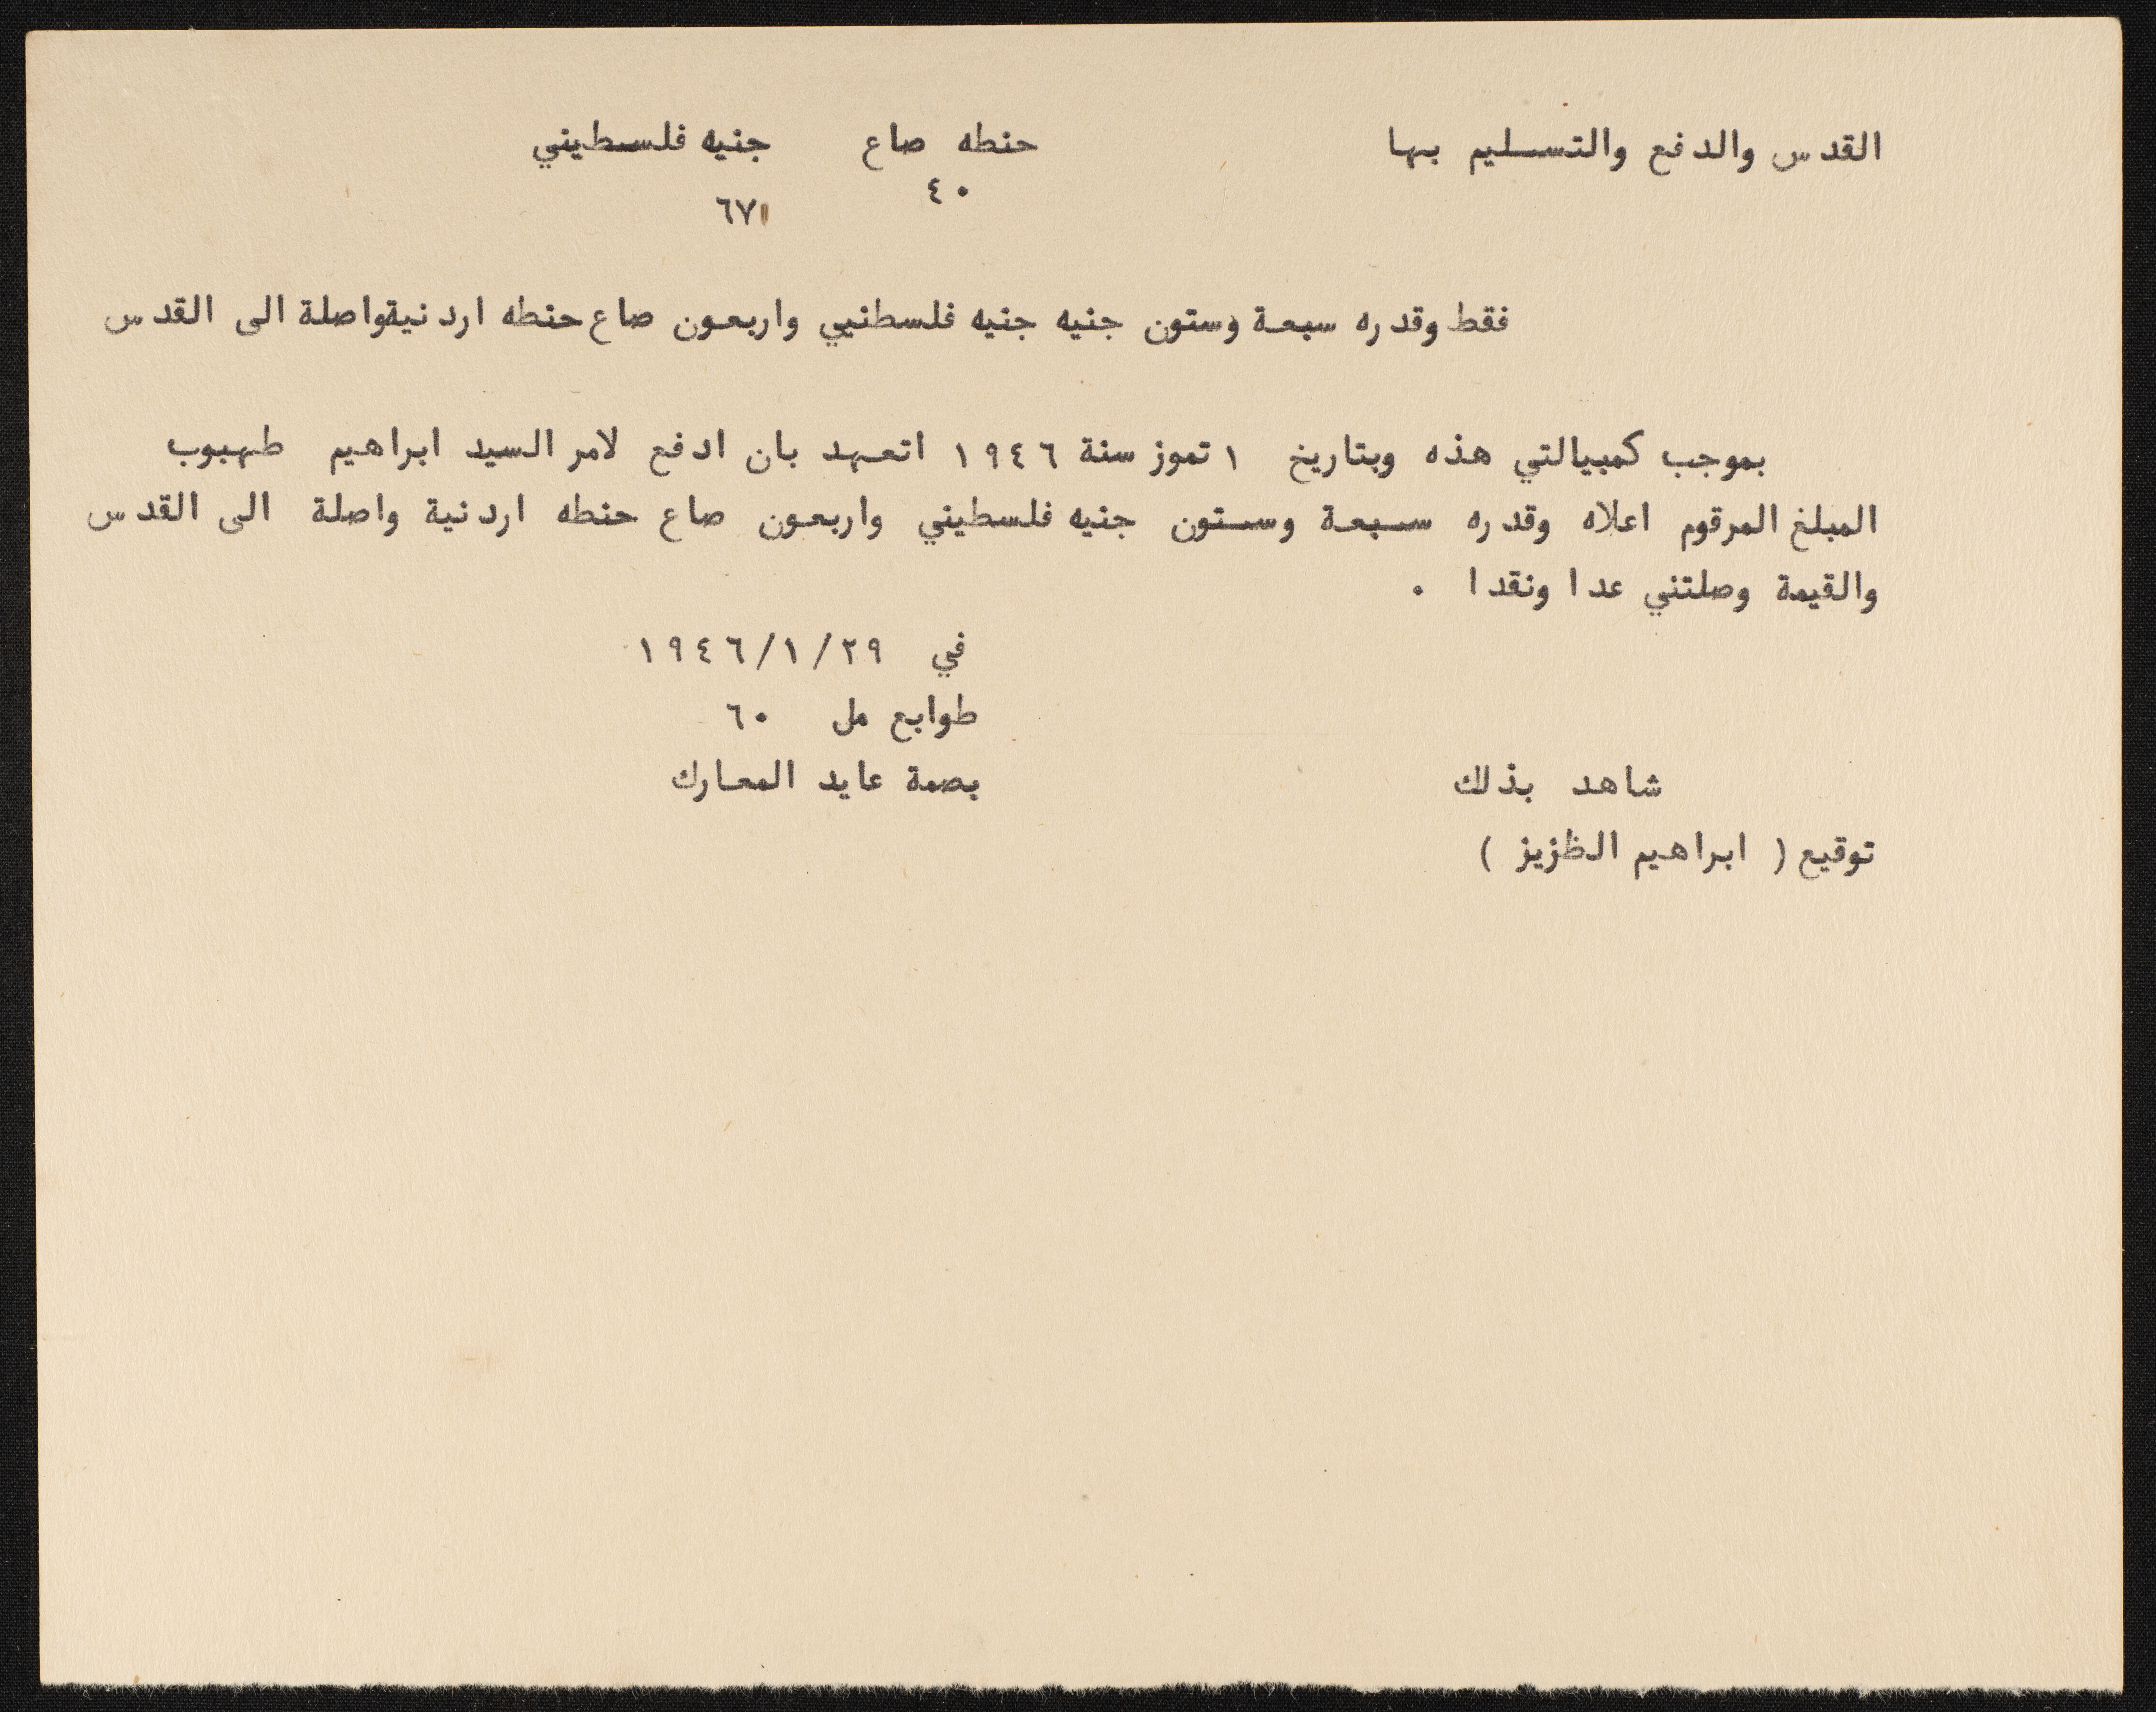 القدس والدفع والتسليم بها حنطه صاع جنيه فلسطيني
٤٠
٦٧
فقط وقدره سبعة وستون جنيه جنيه فلسطنيي واربعون صاع حنطه اردنية واصلة الى القدس
بموجب كمبيالتي هذه وبتاريخ ١ تموز سنة ١٩٤٦ اتعهد بان ادفع لامر السيد ابراهيم طهبوب
المبلغ المرقوم اعلاه وقدره سبعة وستون جنيه فلسطيني واربعون صاع حنطه اردنية واصلة الى القدس
والقيمة وصلتني عدا ونقدا .
في ٢٩/١/١٩٤٦
طوابع مل ٦٠
شاهد بذلك بصمة عايد المعارك
توقيع ( ابراهيم الظزيز )